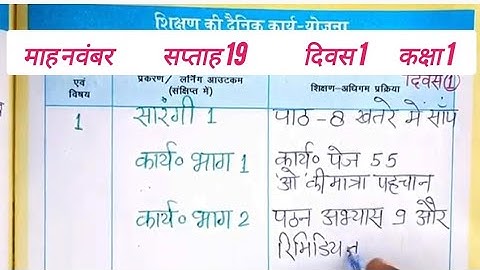 शिक्षण की दैनिक कार्य-योजना
माह नवंबर सप्ताह 19 दिवस 1 कक्षा 1
एवं विषय
प्रकरण/ लर्निंग आउटकम (संक्षिप्त में)
शिक्षण-अधिगम प्रक्रिया
दिवस 1
1 सारंगी 1 पाठ -8 खतरे में साँप
कार्य० भाग 1 कार्य० पेज 55
'ओ' की मात्रा पहचान
कार्य० भाग 2 पठन अभ्यास 9 और
रिमिडियन